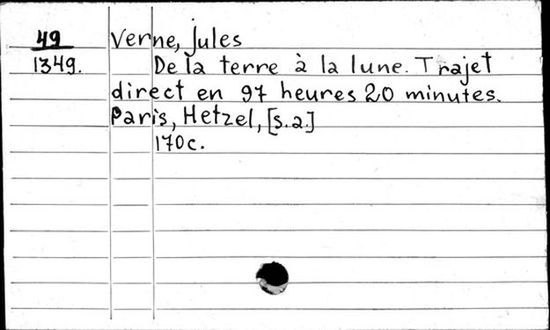 49
1349.
Verne, Jules
De la terre à la lune. Trajet
direct en 97 heures 20 minutes.
Paris, Hetzel, [s.a.]
170c.